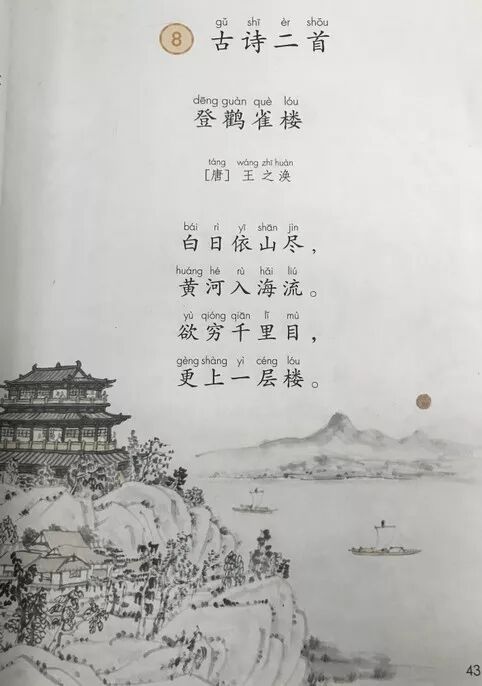 gǔ shī èr shǒu
8 古诗二首
dēng guàn què lóu
登鹳雀楼
táng wáng zhī huàn
[唐] 王之涣
bái rì yī shān jìn
白日依山尽，
huáng hé rù hǎi liú
黄河入海流。
yù qióng qiān lǐ mù
欲穷千里目，
gèng shàng yì céng lóu
更上一层楼。
43